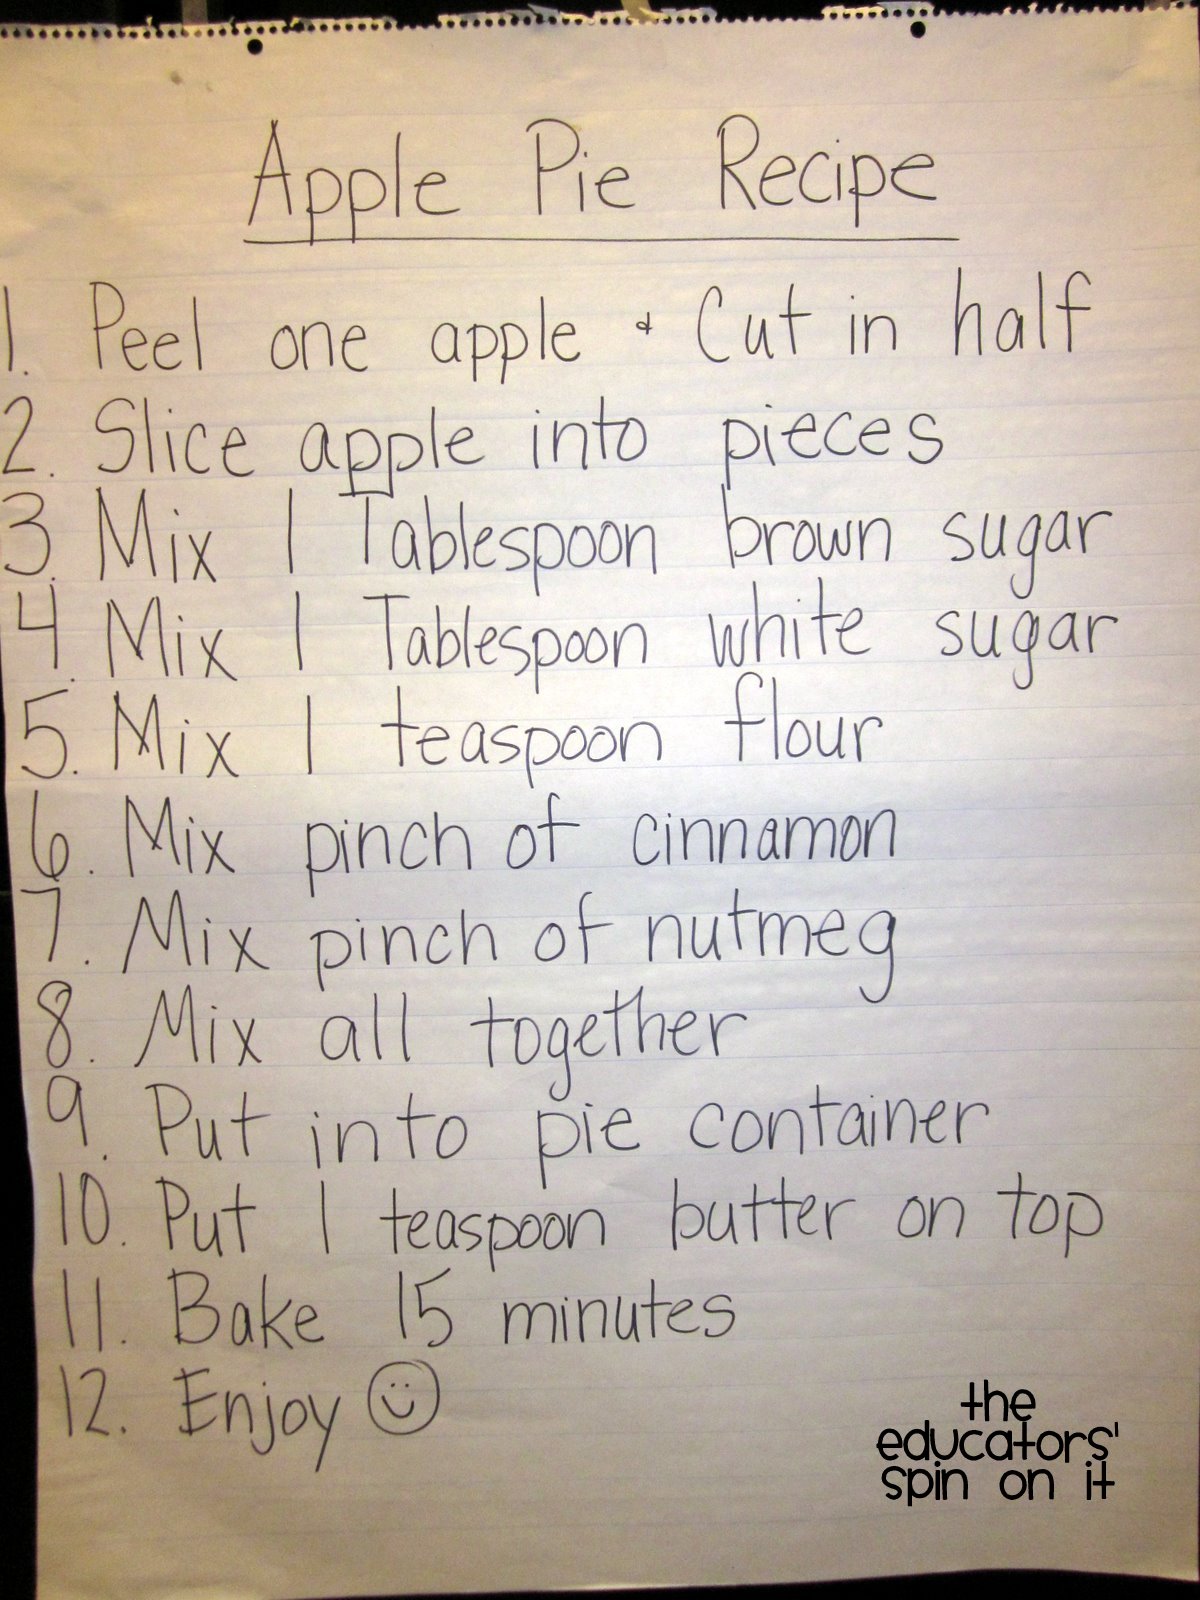 Apple Pie Recipe
1. Peel one apple & Cut in half
2. Slice apple into pieces
3. Mix 1 Tablespoon brown sugar
4. Mix 1 Tablespoon white sugar
5. Mix 1 teaspoon flour
6. Mix pinch of cinnamon
7. Mix pinch of nutmeg
8. Mix all together
9. Put into pie container
10. Put 1 teaspoon butter on top
11. Bake 15 minutes
12. Enjoy
the
educators'
spin on it